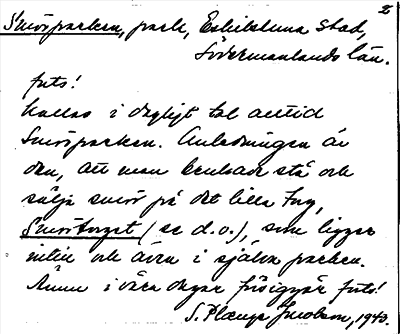 2
Smörparken, park, Eskilstuna stad,
Södermanlands län.
forts!
kallas i dagligt tal alltid
Smörparken. Anledningen är
den, att man brukade stå och
sälja smör på det lilla torg,
Smörtorget (se d.o.), som ligger
intill och även i själva parken.
Ännu i våra dagar försiggår forts!
S. Jacobson, 1943.